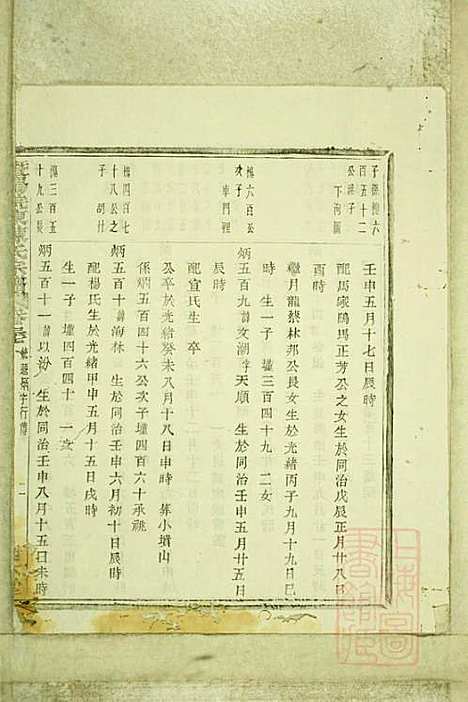 壬申五月十七日辰時
配馬家鴎馬正芳公之女生於同治戊辰正月廿八日
酉時
繼月龍橤林邦公長女生於光緒丙子九月十九日巳
時 生一子 㙷三百四十九 二女
炳五百九 諱文湖 字天順 生於同治壬申五月廿五日
辰時
配宣氏 生 卒
公卒於光緒癸未八月十八日申時 葬小墳山
係炳五百四十六公次子㙷四百六十承祧
炳五百十 諱海林 生於同治壬申六月初十日辰時
配楊氏生於光緒甲申五月十五日戌時
生一子㙷四百四十 一女
炳五百十一 諱以汾 生於同治壬申八月十五日未時
子係
百五十二
公
六百公
次子
四百七
十八公之
子
三百五
十九公長
氏宗譜
炳字行傳
上海圖
書館藏